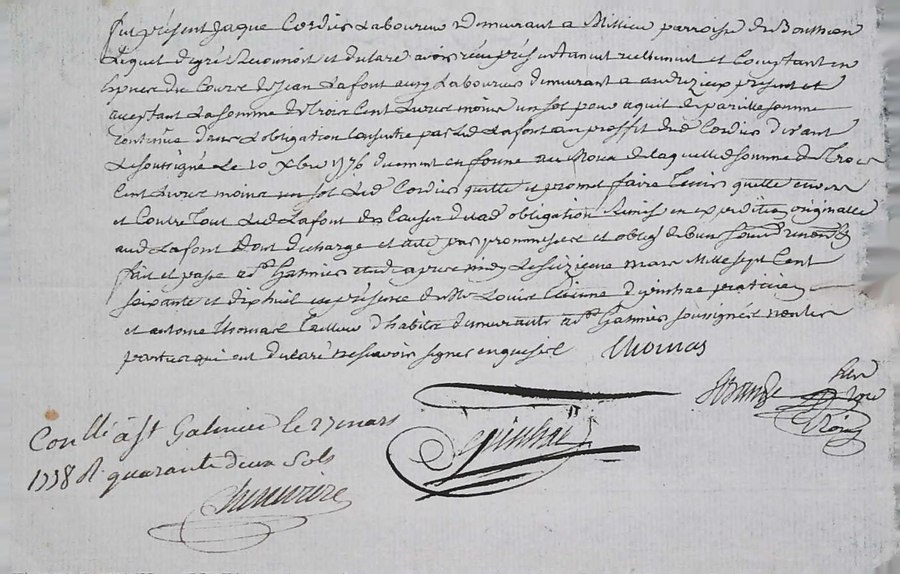 fut présent Jaque Cordier Laboureur demeurant a Millieu parroisse de Boutheon
Lequel de gré Reconnoit et declare avoir reçu présentement reellement et Comptant en
Espece du Cours de Jean Lafont aussy Laboureur demeurant a andrezieux présent et
aceptant La somme de trois Cent Livres moins un sol pour aquit de pareille somme
contenüe dans L'obligation Consentie par Led Lafont au proffit dud Cordier devant
Le soussigné Le 10 Xbre 1776 duement en forme au moien de laquelle de somme de trois
Cent Livres moins un sol Led Cordier quitte et promet faire Tenir quitte envers
et Contre Tout Led Lafont des Causes de lad obligation Remise en expedition originalle
aud Lafont dont decharge et a été par promesses et oblig de biens
fait et passé a St Galmier etude apres midy Le sizieme mars Mille sept Cent
soixante et dix huit en présence de Me Louis praticien
et antoine thomas tailleur d'habits demeurants a St Galmier soussignés non les
parties qui ont declaré ne scavoir signer enquis
thomas
Conllé à St Galmier le 27 mars
1778 R quarante deux sols